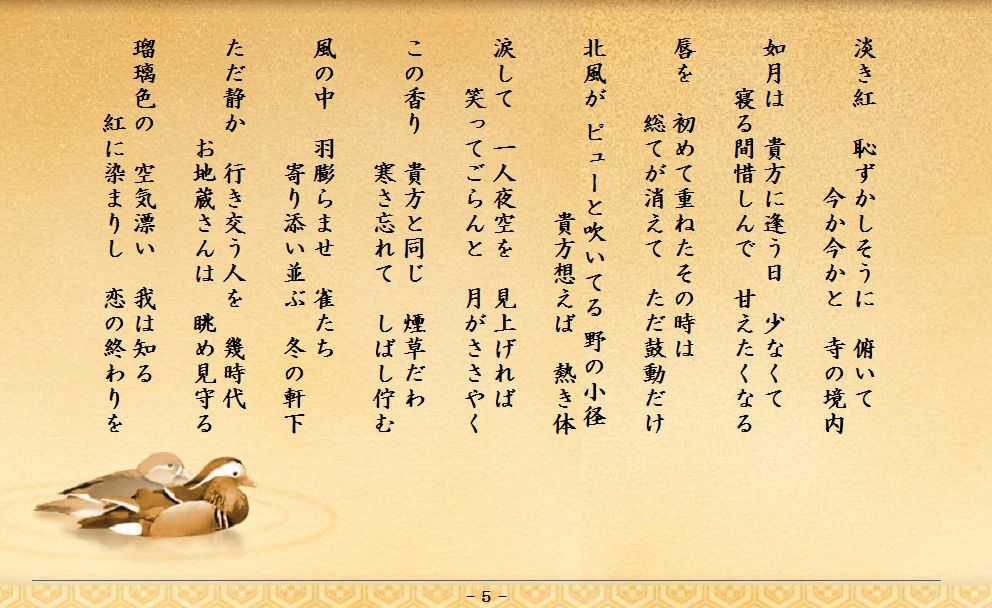 淡き紅　恥ずかしそうに　俯いて
今か今かと　寺の境内
如月は　貴方に逢う日　少なくて
寝る間惜しんで　甘えたくなる
唇を　初めて重ねたその時は
総てが消えて　ただ鼓動だけ
北風が　ピューと吹いてる　野の小径
貴方想えば　熱き体
涙して　一人夜空を　見上げれば
笑ってごらんと　月がささやく
この香り　貴方と同じ　煙草だわ
寒さ忘れて　しばし佇む
風の中　羽膨らませ　雀たち
寄り添い並ぶ　冬の軒下
ただ静か　行き交う人を　幾時代
お地蔵さんは　眺め見守る
瑠璃色の　空気漂い　我は知る
紅に染まりし　恋の終わりを
- 5 -